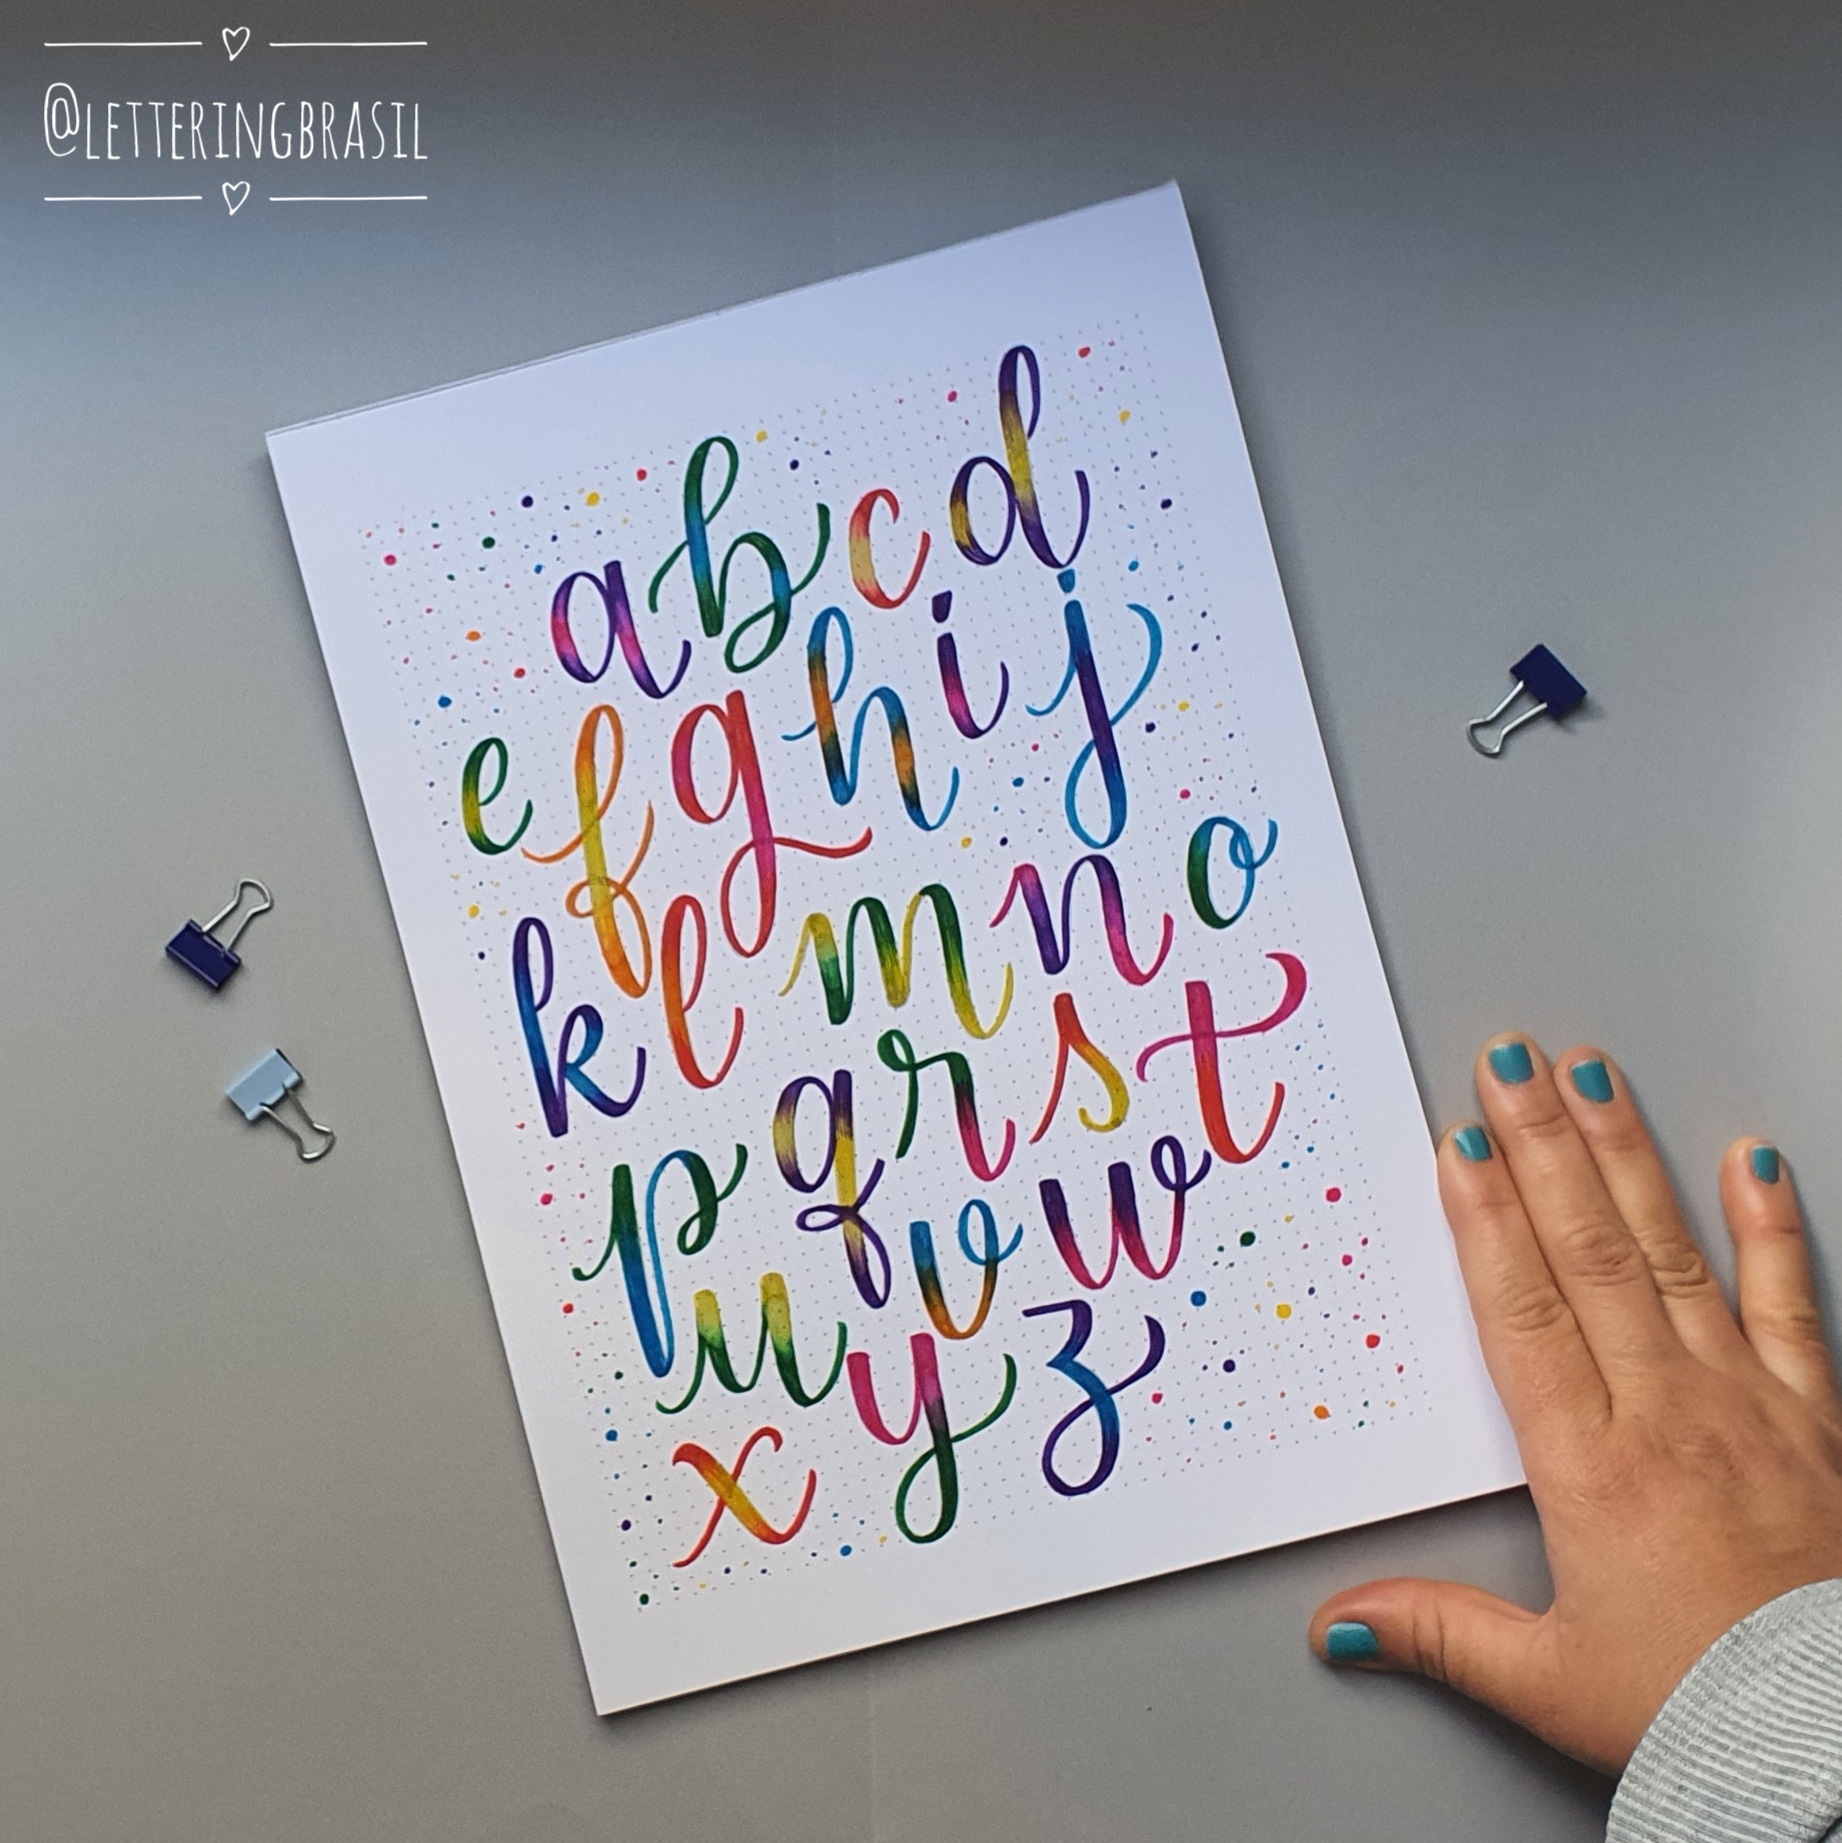 @LETTERINGBRASIL
a b c d
e f g h i j
k l m n o
p q r s t
u v w
x y z